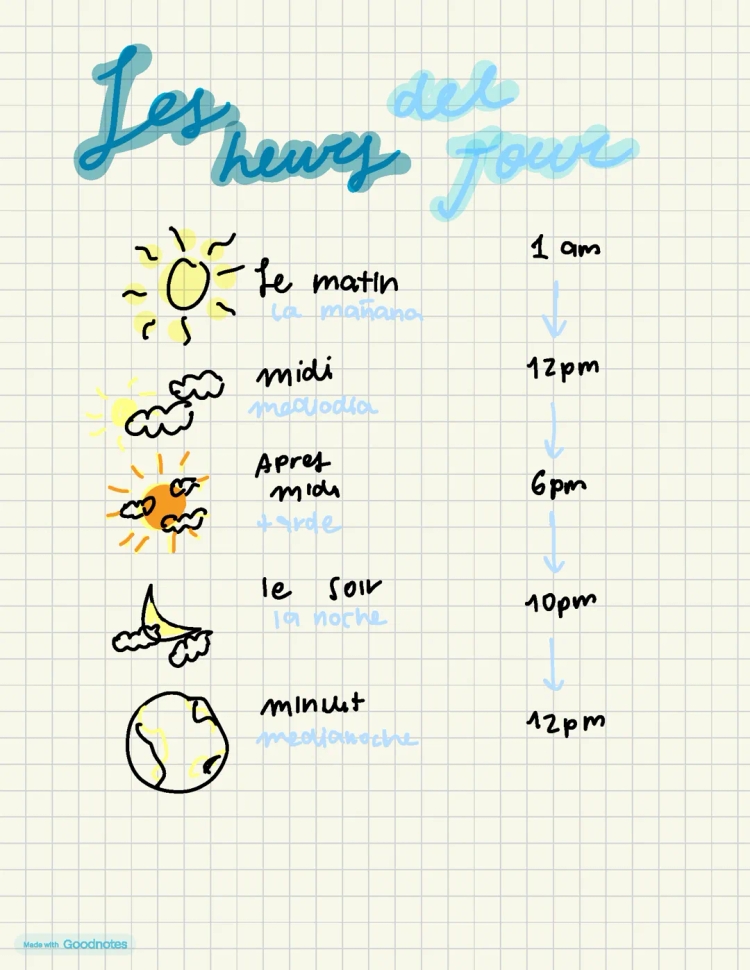 Les heurs del Jour
1 am
Le matin
la mañana
midi
12pm
mediodia
Apres
midi
6pm
tarde
le soir
10pm
la noche
minuit
12pm
medianoche
Made with Goodnotes